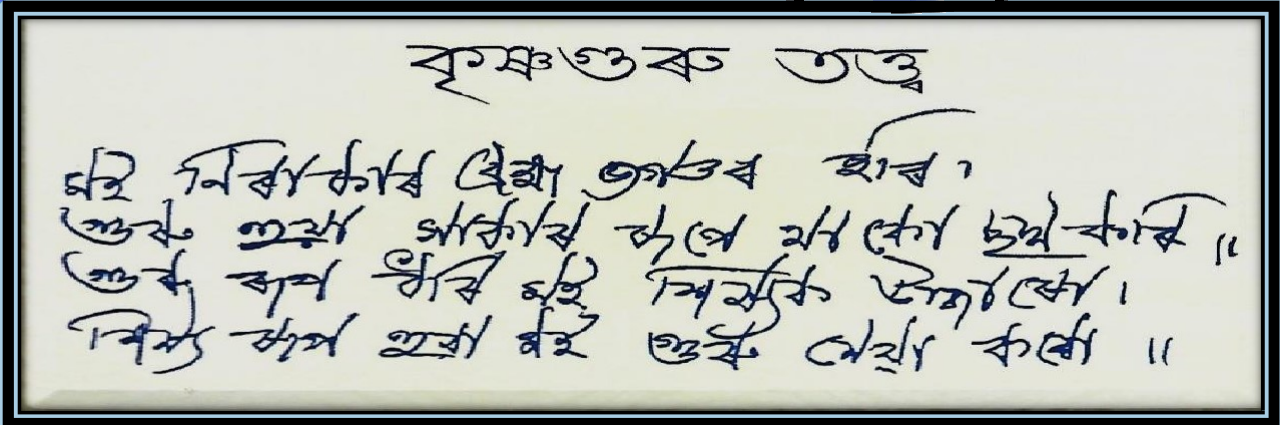 কৃষ্ণগুৰু তত্ত্ব
মই নিৰাকাৰ ব্ৰহ্ম ভগৱন্ত হৰি।
গুৰু হুয়া সাকাৰ ৰূপে থাকো ছদ্ম কাৰি॥
গুৰু ৰূপ ধৰি মই শিষ্যক উদ্ধাৰো।
শিষ্য ৰূপ হুয়া মই গুৰু সেৱা কৰো॥